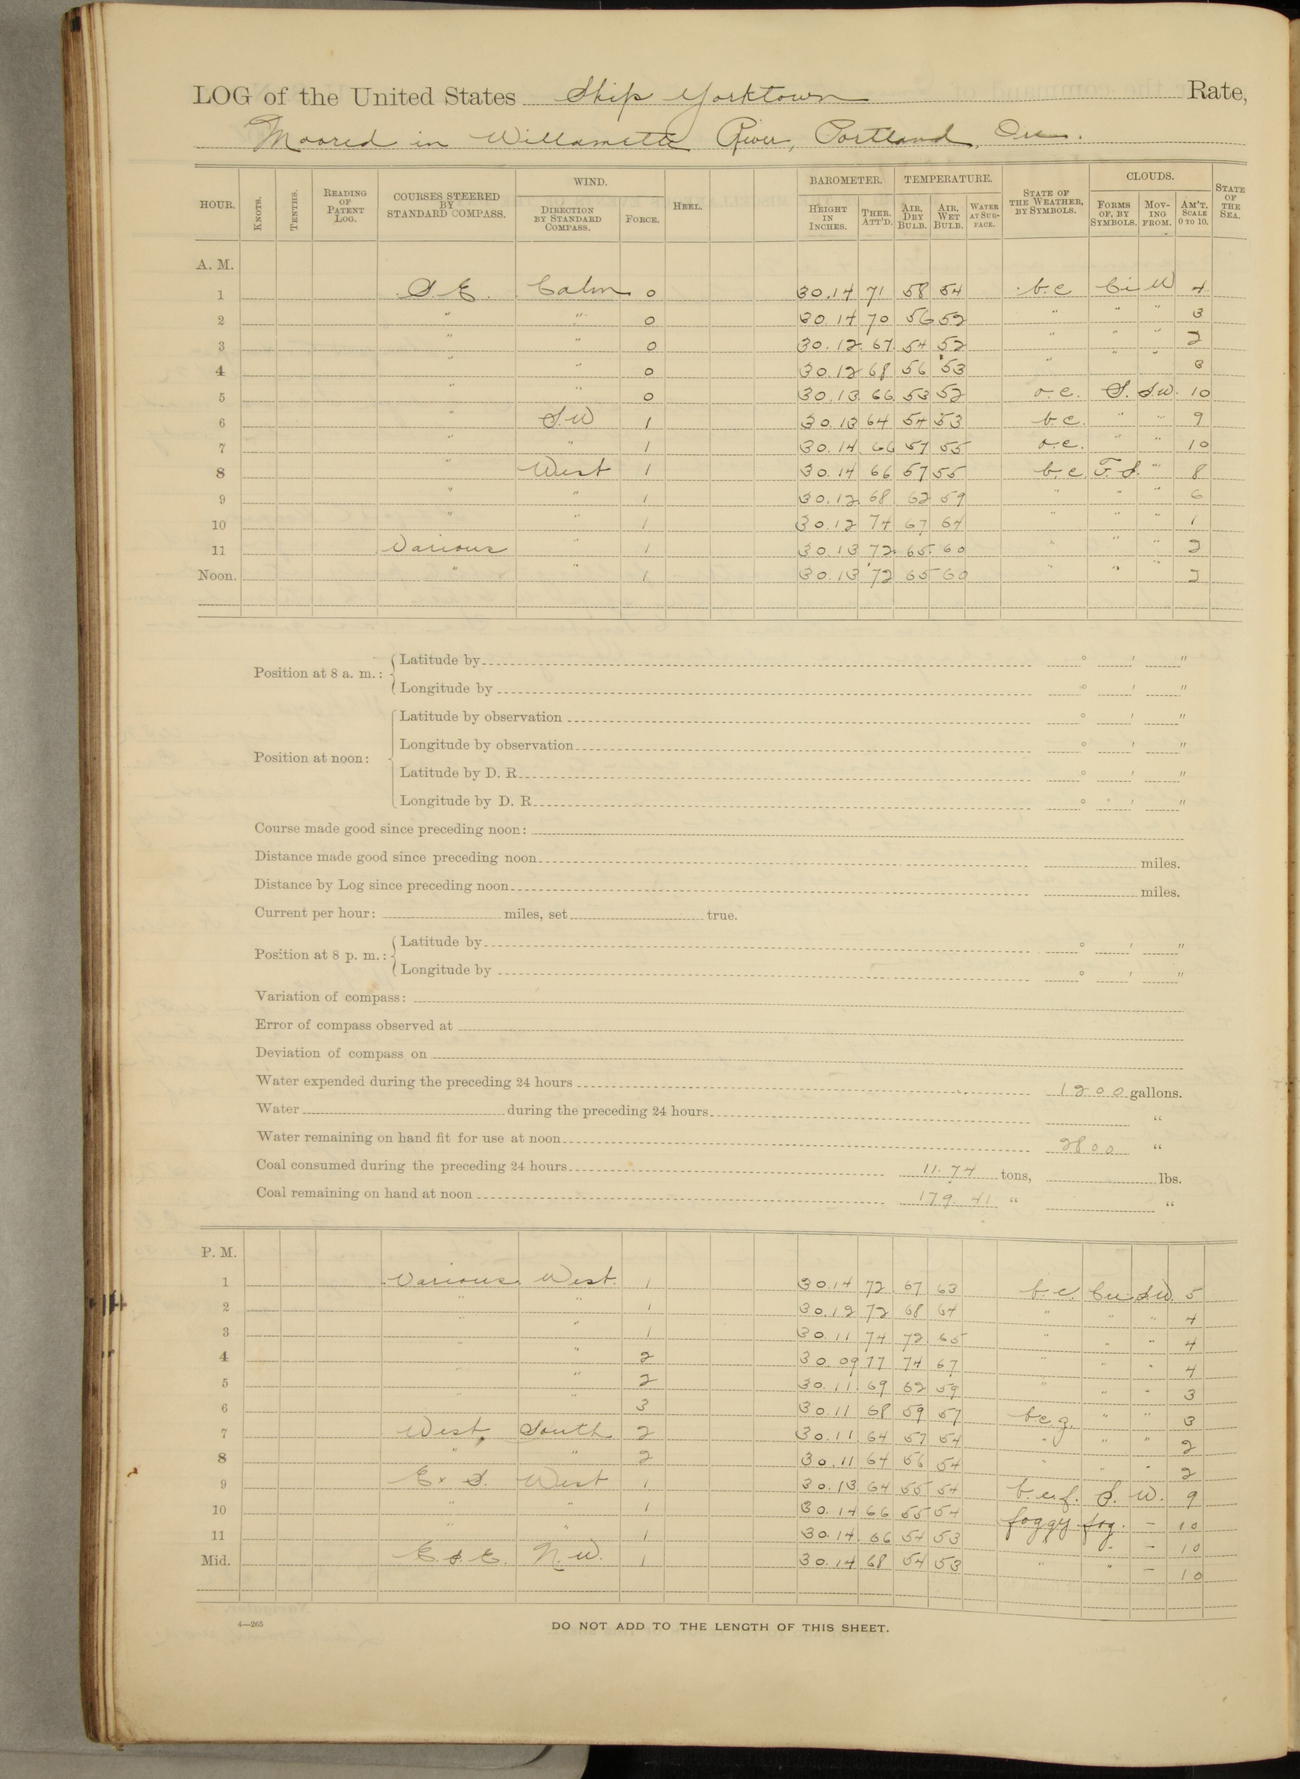 LOG of the United States Ship Yorktown Rate,
Moored in Willamette River, Portland, Ore.
HOUR. KNOTS. TENTHS. READING OF PATENT LOG. COURSES STEERED BY STANDARD COMPASS. WIND. DIRECTION BY STANDARD COMPASS. FORCE. HEEL. BAROMETER. HEIGHT IN INCHES. THER. ATT'D. TEMPERATURE. AIR, DRY BULB. AIR, WET BULB. WATER AT SURFACE. STATE OF THE WEATHER, BY SYMBOLS. CLOUDS. FORMS OF, BY SYMBOLS. MOVING FROM. AM'T. SCALE 0 TO 10. STATE OF THE SEA.
A. M.
1 S.E. Calm 0 30.14 71 58 54 b.c Ci W 4
2 " " 0 30.14 70 56 52 " " " 3
3 " " 0 30.12 67 54 52 " " " 2
4 " " 0 30.12 68 56 53 " " " 3
5 " " 0 30.13 66 53 52 o.c. S. S.W. 10
6 " S.W 1 30.13 64 54 53 b.c. " " 9
7 " " 1 30.14 66 57 55 o.c. " " 10
8 " West 1 30.14 66 57 55 b.c. F.S. " 8
9 " " 1 30.12 68 62 59 " " " 6
10 " " 1 30.12 74 67 64 " " " 1
11 Various " 1 30.13 72 65 60 " " " 2
Noon. " " 1 30.13 72 65 60 " " " 2
Position at 8 a. m.: Latitude by ° ' "
Longitude by ° ' "
Position at noon: Latitude by observation ° ' "
Longitude by observation ° ' "
Latitude by D. R. ° ' "
Longitude by D. R. ° ' "
Course made good since preceding noon:
Distance made good since preceding noon miles.
Distance by Log since preceding noon miles.
Current per hour: miles, set true.
Position at 8 p. m.: Latitude by ° ' "
Longitude by ° ' "
Variation of compass:
Error of compass observed at
Deviation of compass on
Water expended during the preceding 24 hours 1200 gallons.
Water during the preceding 24 hours "
Water remaining on hand fit for use at noon 2800 "
Coal consumed during the preceding 24 hours 11.74 tons, lbs.
Coal remaining on hand at noon 179.41 " "
P. M.
1 Various West. 1 30.14 72 67 63 b.c. Cu S.W. 5
2 " " 1 30.12 72 68 64 " " " 4
3 " " 1 30.11 74 72 65 " " " 4
4 " 2 30.09 77 74 67 " " " 4
5 " " 2 30.11 69 62 59 " " " 3
6 " " 3 30.11 68 59 57 b.c.g. " " 3
7 West South 2 30.11 64 57 54 " " " 2
8 " " 2 30.11 64 56 54 " " " 2
9 E x S. West 1 30.13 64 55 54 b.c.f. S. W. 9
10 " " 1 30.14 66 55 54 foggy fog. — 10
11 " " 1 30.14 66 54 53 " " — 10
Mid. E.S.E. N.W. 1 30.14 68 54 53 " " — 10
4—265
DO NOT ADD TO THE LENGTH OF THIS SHEET.